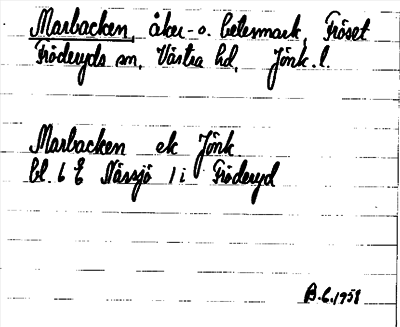 Marbacken, åker- o. betesmark, Fröset
Fröderyds sn, Västra hd, Jönk. l.
Marbacken ek Jönk.
bl. 6 E Nässjö 1 i Fröderyd
B.C. 1958